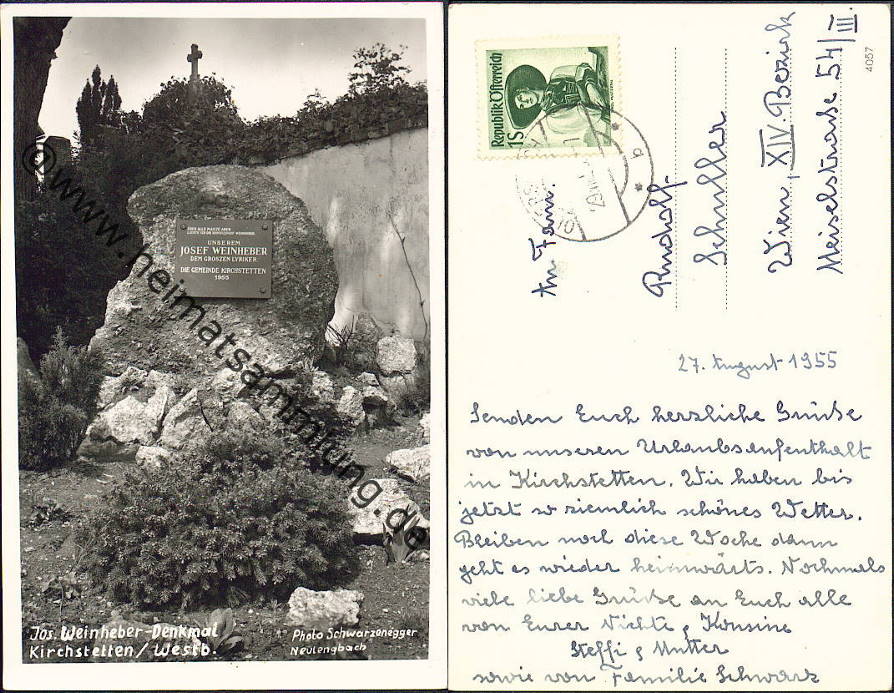 UNSEREM
JOSEF WEINHEBER
DEM GROSZEN LYRIKER
DIE GEMEINDE KIRCHSTETTEN
1955
© www.heimatsammlung.de
Jos. Weinheber-Denkmal
Kirchstetten / Westb.
Photo Schwarzenegger
Neulengbach
Republik Österreich
1S
b
An Fam.
Rudolf
Schuller
Wien, XIV. Bezirk
Meiselstrasse 54/III
4057
27. August 1955
Senden Euch herzliche Grüße
von unseren Urlaubsaufenthalt
in Kirchstetten. Wir haben bis
jetzt so ziemlich schönes Wetter.
Bleiben noch diese Woche dann
geht es wieder heimwärts. Nochmals
viele liebe Grüße an Euch alle
von Eurer Nichte, Kousine
Steffi, Mutter
sowie von Familie Schwarz